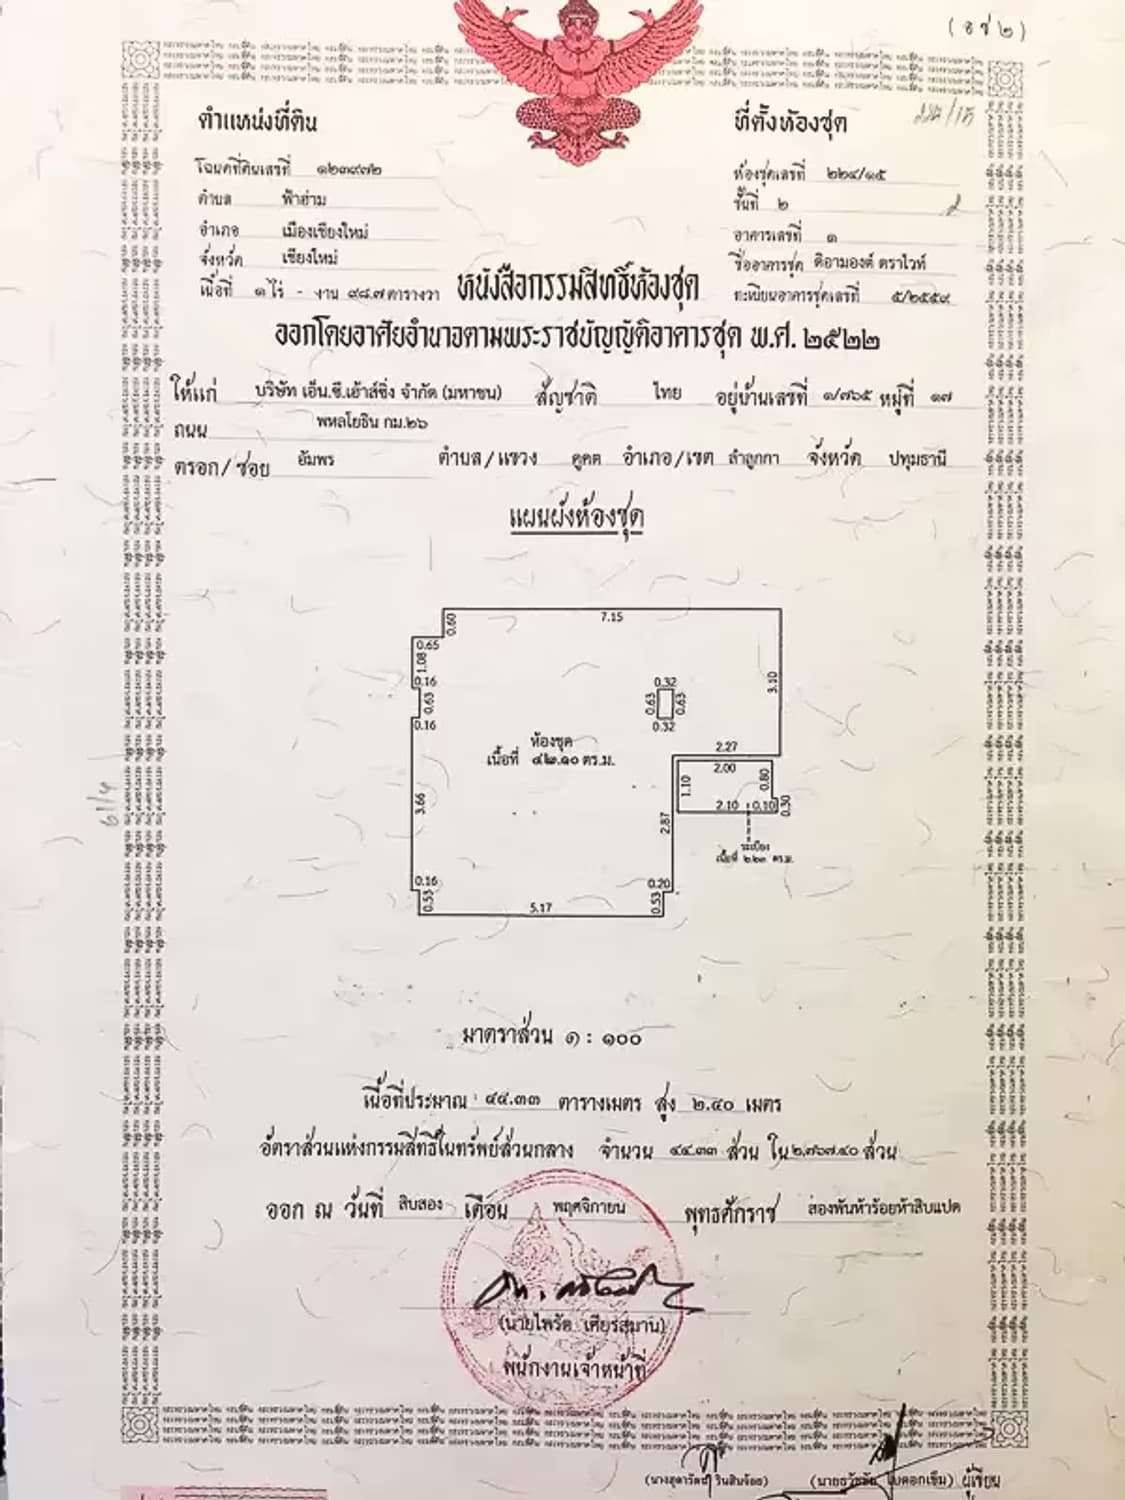 (อช ๒)
ตำแหน่งที่ดิน
โฉนดที่ดินเลขที่ ๑๒๓๙๗๒
ตำบล ฟ้าฮ่าม
อำเภอ เมืองเชียงใหม่
จังหวัด เชียงใหม่
เนื้อที่ ๑ ไร่ - งาน ๙๘.๗ ตารางวา
ที่ตั้งห้องชุด
ห้องชุดเลขที่ ๒๒๔/๑๕
ชั้นที่ ๒
อาคารเลขที่ ๑
ชื่ออาคารชุด ดิอามองต์ ตราไวท์
ทะเบียนอาคารชุดเลขที่ ๕/๒๕๕๙
หนังสือกรรมสิทธิ์ห้องชุด
ออกโดยอาศัยอำนาจตามพระราชบัญญัติอาคารชุด พ.ศ. ๒๕๒๒
ให้แก่ บริษัท เอ็น.ซี.เฮ้าส์ซิ่ง จำกัด (มหาชน) สัญชาติ ไทย อยู่บ้านเลขที่ ๑/๗๖๕ หมู่ที่ ๑๗
ถนน พหลโยธิน กม.๒๖
ตรอก/ซอย อัมพร ตำบล/แขวง คูคต อำเภอ/เขต ลำลูกกา จังหวัด ปทุมธานี
แผนผังห้องชุด
7.15
0.60
0.65
1.08
0.16
0.63
0.16
3.66
0.16
0.53
5.17
0.53
0.20
2.87
2.27
3.10
0.32
0.63
0.63
0.32
2.00
0.80
1.10
2.10
0.10
0.30
ห้องชุด
เนื้อที่ ๔๒.๑๐ ตร.ม.
ระเบียง
เนื้อที่ ๒.๒๓ ตร.ม.
มาตราส่วน ๑ : ๑๐๐
เนื้อที่ประมาณ ๔๔.๓๓ ตารางเมตร สูง ๒.๔๐ เมตร
อัตราส่วนแห่งกรรมสิทธิ์ในทรัพย์ส่วนกลาง จำนวน ๔๔.๓๓ ส่วน ใน ๒,๗๖๗.๔๐ ส่วน
ออก ณ วันที่ สิบสอง เดือน พฤศจิกายน พุทธศักราช สองพันห้าร้อยห้าสิบแปด
(นายไพรัต เศียรสมาน)
พนักงานเจ้าหน้าที่
ผู้เขียน